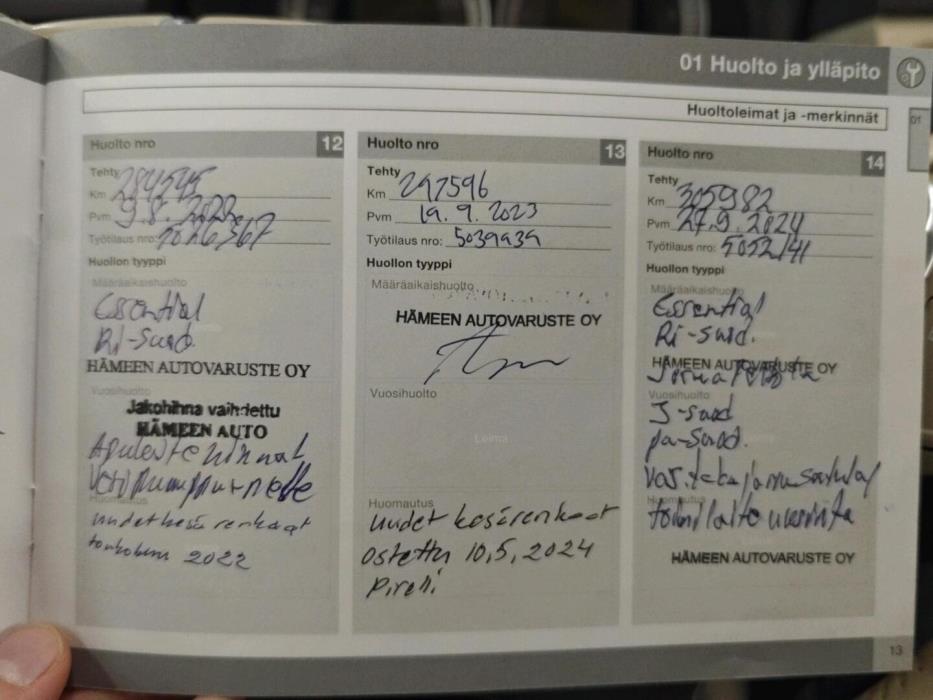 01 Huolto ja ylläpito
Huoltoleimat ja -merkinnät
01
Huolto nro 12
Tehty
Km 284545
Pvm 9.8.2022
Työtilaus nro: 5026367
Huollon tyyppi
Määräaikaishuolto
Essential
Ri-suod.
HÄMEEN AUTOVARUSTE OY
Vuosihuolto
Jakohihna vaihdettu
HÄMEEN AUTO
Apulaitehihnat
Vesipumppu
Huomautus
uudet kesä renkaat
toukokuu 2022
Huolto nro 13
Tehty
Km 297596
Pvm 19.9.2023
Työtilaus nro: 5039939
Huollon tyyppi
Määräaikaishuolto
HÄMEEN AUTOVARUSTE OY
Vuosihuolto
Leima
Huomautus
uudet kesärenkaat
ostettu 10,5,2024
Pirelli
Huolto nro 14
Tehty
Km 305982
Pvm 27.9.2024
Työtilaus nro: 5052141
Huollon tyyppi
Määräaikaishuolto
Essential
Ri-suod.
HÄMEEN AUTOVARUSTE OY
Vuosihuolto
I-suod
pa-suod.
Vas. taka jarrusatulan
Huomautus
toimilaite uusinta
HÄMEEN AUTOVARUSTE OY
13